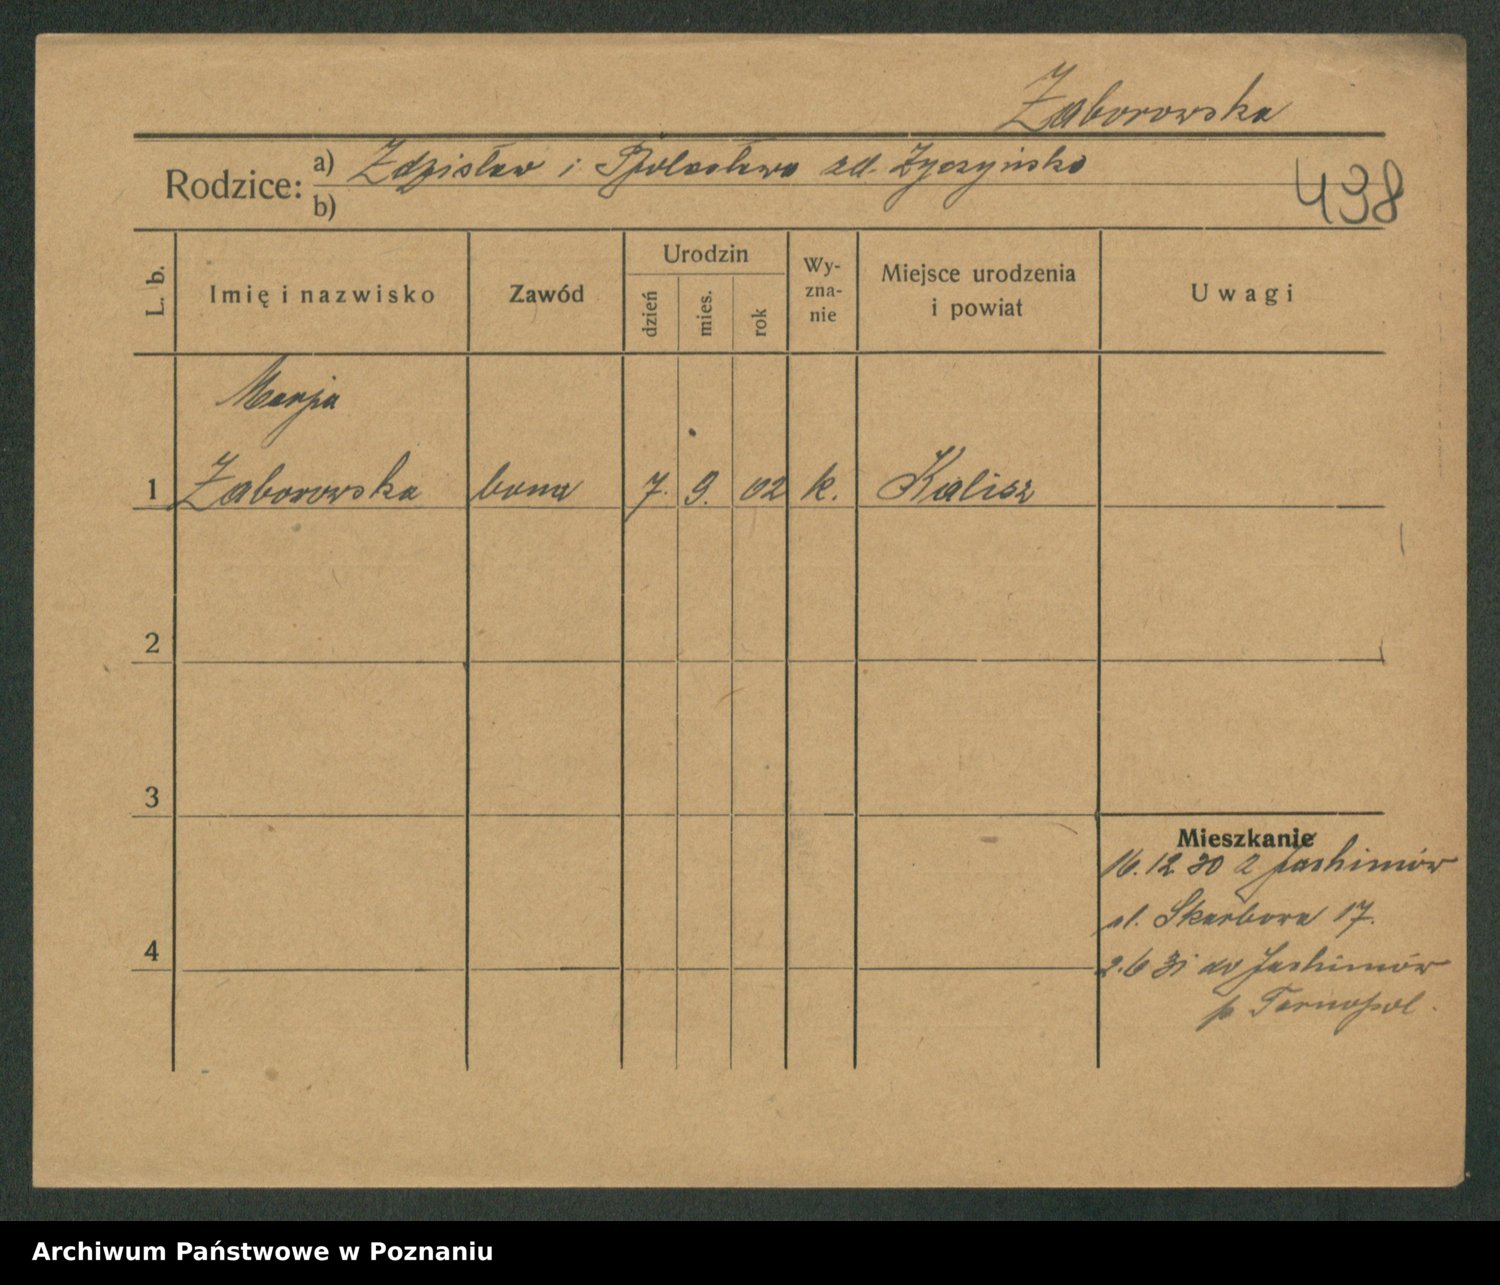 Zaborowska
Rodzice: a) Zdzisław i zd. Życzyńska
438
b)
L. b.
Imię i nazwisko
Zawód
Urodzin
dzień
mies.
rok
Wy-
zna-
nie
Miejsce urodzenia
i powiat
Uwagi
Marja
1 Zaborowska bona 7. 9. 02 k. Kalisz
2
3
Mieszkanie
16.12.30 z Jachimów
ul. Skarbowa 17.
4
2.6 31 do Jachimów
p Tarnopol.
Archiwum Państwowe w Poznaniu